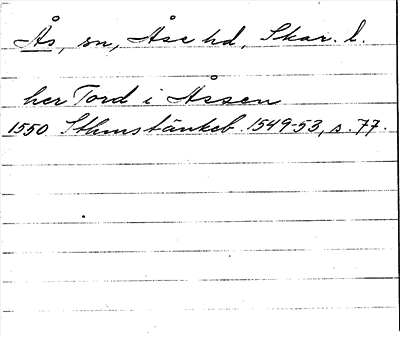 Ås, sn, Åse hd, Skar. l.
her Tord i Åssen
1550 Sthms tänkeb. 1549-53, s. 77.